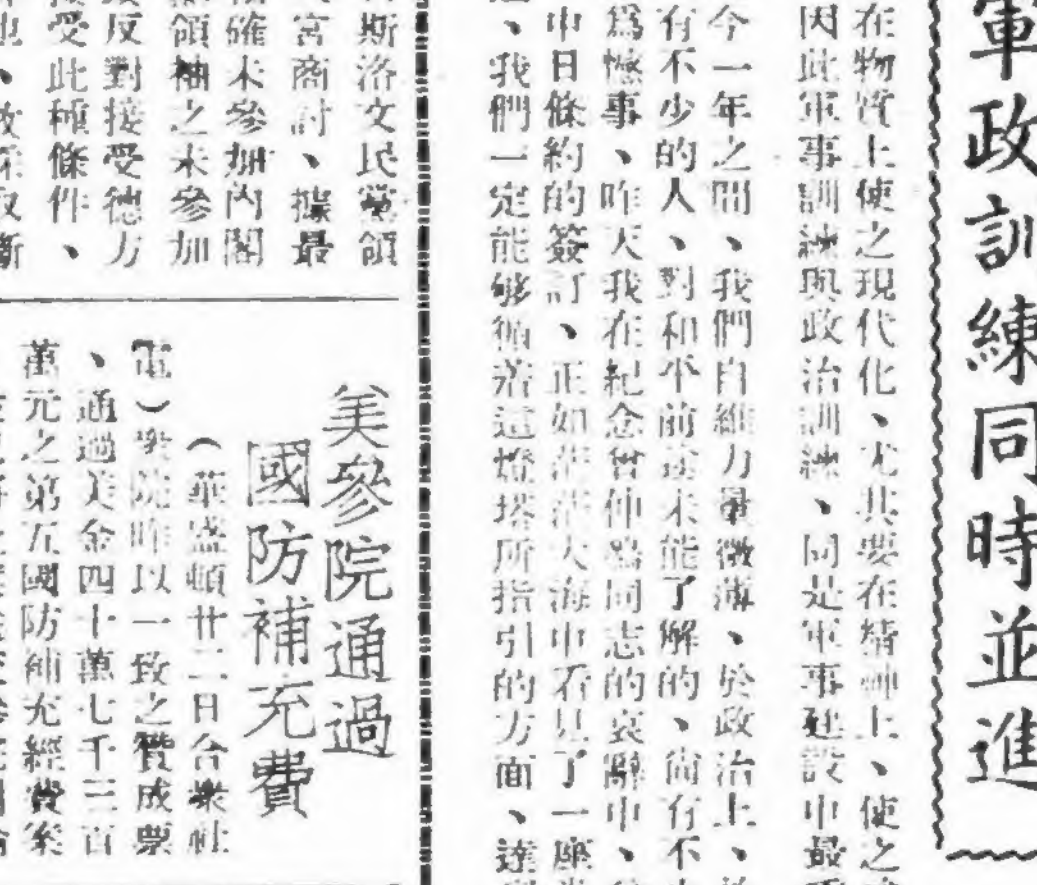 軍政訓練同時並進
在物質上使之現代化、尤其要在精神上、使之
因此軍事訓練與政治訓練、同是軍事建設中最
今一年之間、我們自維力量微薄、於政治上、
有不少的人、對和平前途未能了解的、尙有不
爲憾事、昨天我在紀念曾仲鳴同志的哀辭中、
中日條約的簽訂、正如茫茫大海中看見了一座
、我們一定能够循着這燈塔所指引的方面、達
斯洛文民黨領
宮商討、據最
確未參加內閣
領袖之未參加
反對接受德方
受此種條件、
美參院通過
國防補充費
（華盛頓廿二日合衆社
電）衆院昨以一致之贊成票
、通過美金四十萬七千三百
萬元之第五國防補充經費案